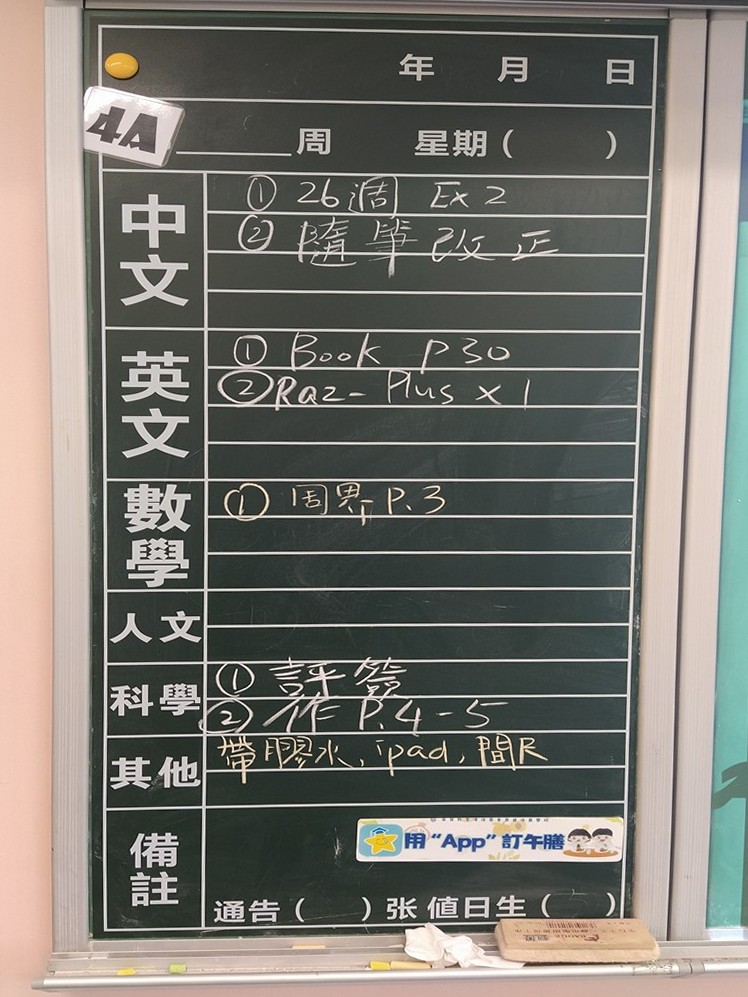 年 月 日
4A
周 星期( )
中文
① 26週 Ex 2
② 隨筆改正
英文
① Book P30
② Raz-Plus x 1
數學
① 周界 P.3
人文
科學
① 評簽
② 作 P.4-5
其他
帶膠水, ipad, 間尺
備註
用“App”訂午膳
通告( )张 值日生( )